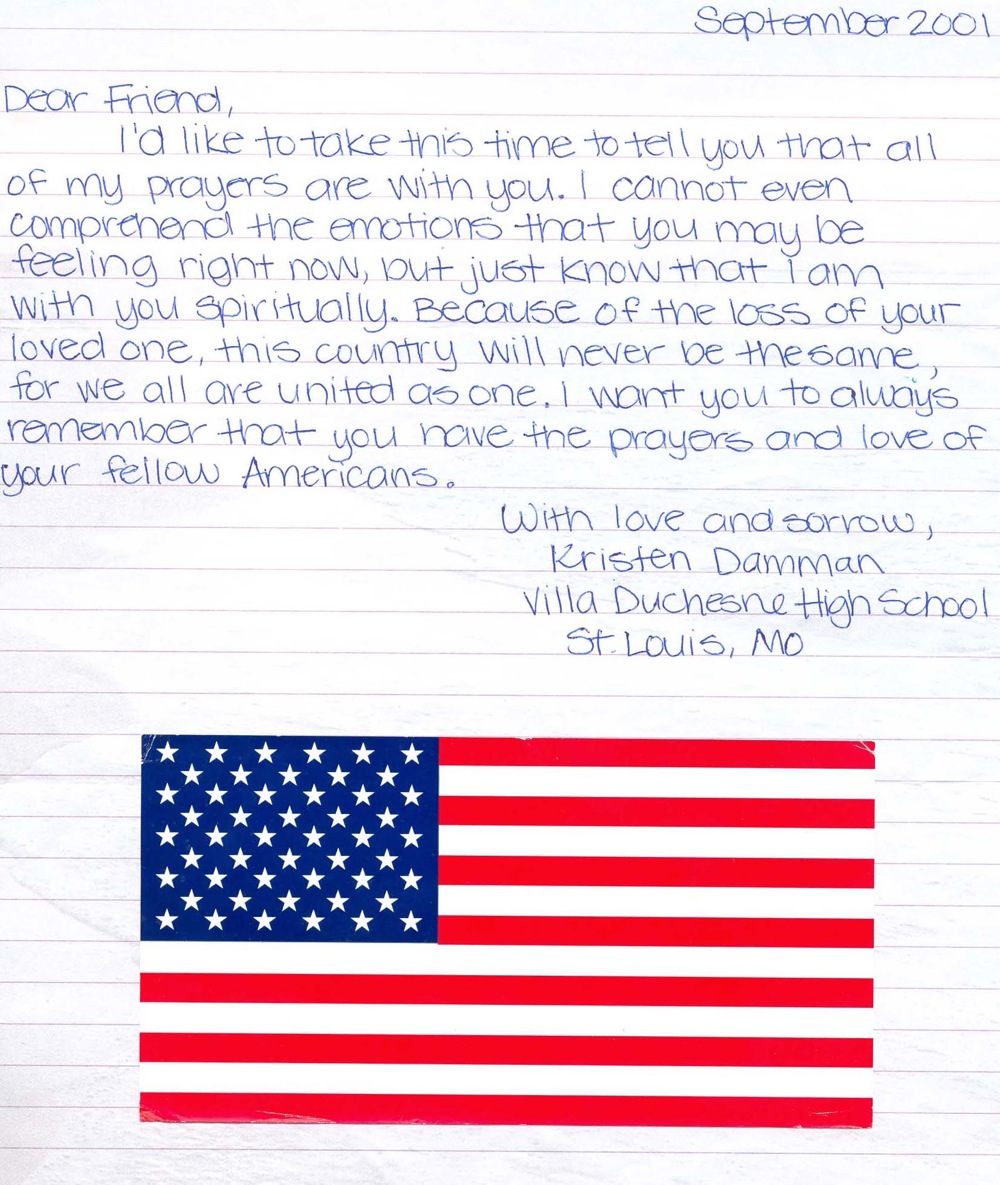 September 2001
Dear Friend,
I'd like to take this time to tell you that all
of my prayers are with you. I cannot even
comprehend the emotions that you may be
feeling right now, but just know that I am
with you spiritually. Because of the loss of your
loved one, this country will never be the same,
for we all are united as one. I want you to always
remember that you have the prayers and love of
your fellow Americans.
With love and sorrow,
Kristen Damman
Villa Duchesne High School
St. Louis, MO